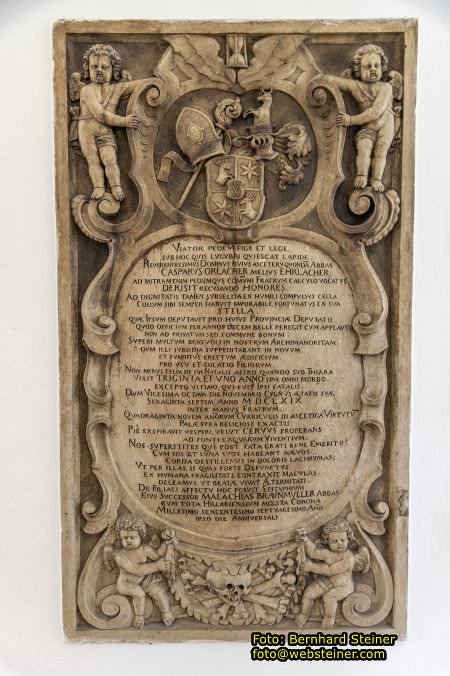 VIATOR PEDEM FIGE ET LEGE
SUB HOC QUIS LUGUBRI QUIESCAT LAPIDE
REVERENDISSIMUS DOMINUS HUIUS ASCETERY QUONDAM ABBAS
CASPARUS ORLACHER MELIUS EHRLACHER
AD MITRAM EN PEDUMQUE COMUNI FRATRUM CALCULO VOCATUS
DERISIT RECUSANDO HONORES
AD DIGNITATIS TAMEN SUBSELLIA EX HUMILI COMPULSUS CELLA
COLLUM SIBI SEMPER HABUIT FAVORABILE FORTUNATUS EX SUA
STELLA
QUÆ IPSUM DEPUTAVIT PRO HUIUS PROVINCIÆ DEPUTATO
QUOD OFFICIUM PER ANNOS DECEM BELLE PEREGIT CUM APPLAUSU
NON AD PRIVATUM SED COMMUNE BONUM
SUPERI MULTUM BENEVOLI IN NOSTRUM ARCHIMANDRITAM
QUI ILLI SUBSIDIA SUPPEDITABANT IN NOVUM
ET FUNDITUS ERECTUM ÆDIFICIUM
PRO USU ET SOLATIO FILIORUM
NON MINUS FELIX DE SUI NATALIS ASTRO QUANDO SUB THIARA
VIXIT TRIGINTA ET UNO ANNO SINE OMNI MORBO
EXCEPTO ULTIMO QUI FUIT IPSI FATALIS
DUM VIGESIMA OCTAVA DIE NOVEMBRIS CYGNUS ÆTATIS SUÆ
SEXAGINTA SEPTEM ANNO MDCLXIX
INTER MANUS FRATRUM
QUADRAGINTA NOVEM ANORUM CURRICULIS IN ASCETICA VIRTUTU
PALÆSTRA RELIGIOSE EXACTIS
PIE EXSPIRAVIT VESPERI VELUT CERVUS PROPERANS
AD FONTES AQUARUM VIVENTIUM
NOS SUPERSTITES QUI POST FATA GRATI BENE EMERITO
CUM SOL ET LUNA SUOS HABEANT NÆVOS
CORDA DESTILLEMUS IN DOLORIS LACHRYMAS
UT PER ILLAS SI QUAS FORTE DEFUNCTUS
EX HUMANA FRAGILITATE CONTRAXIT MACULAS
DELEAMUS UT BEATÆ VIVAT ÆTERNITATI
DE FILIALI AFFECTU HOC POSUIT EPITAPHIUM
EIUS SUCCESSOR MALACHIAS BRAUNMÜLLER ABBAS
CUM TOTA HILLARIENSIUM MŒSTA CORONA
MILLESIMO SEXCENTESIMO SEPTUAGESIMO ANNI
IPSO DIE ANNIVERSALI
Foto: Bernhard Steiner
foto@websteiner.com